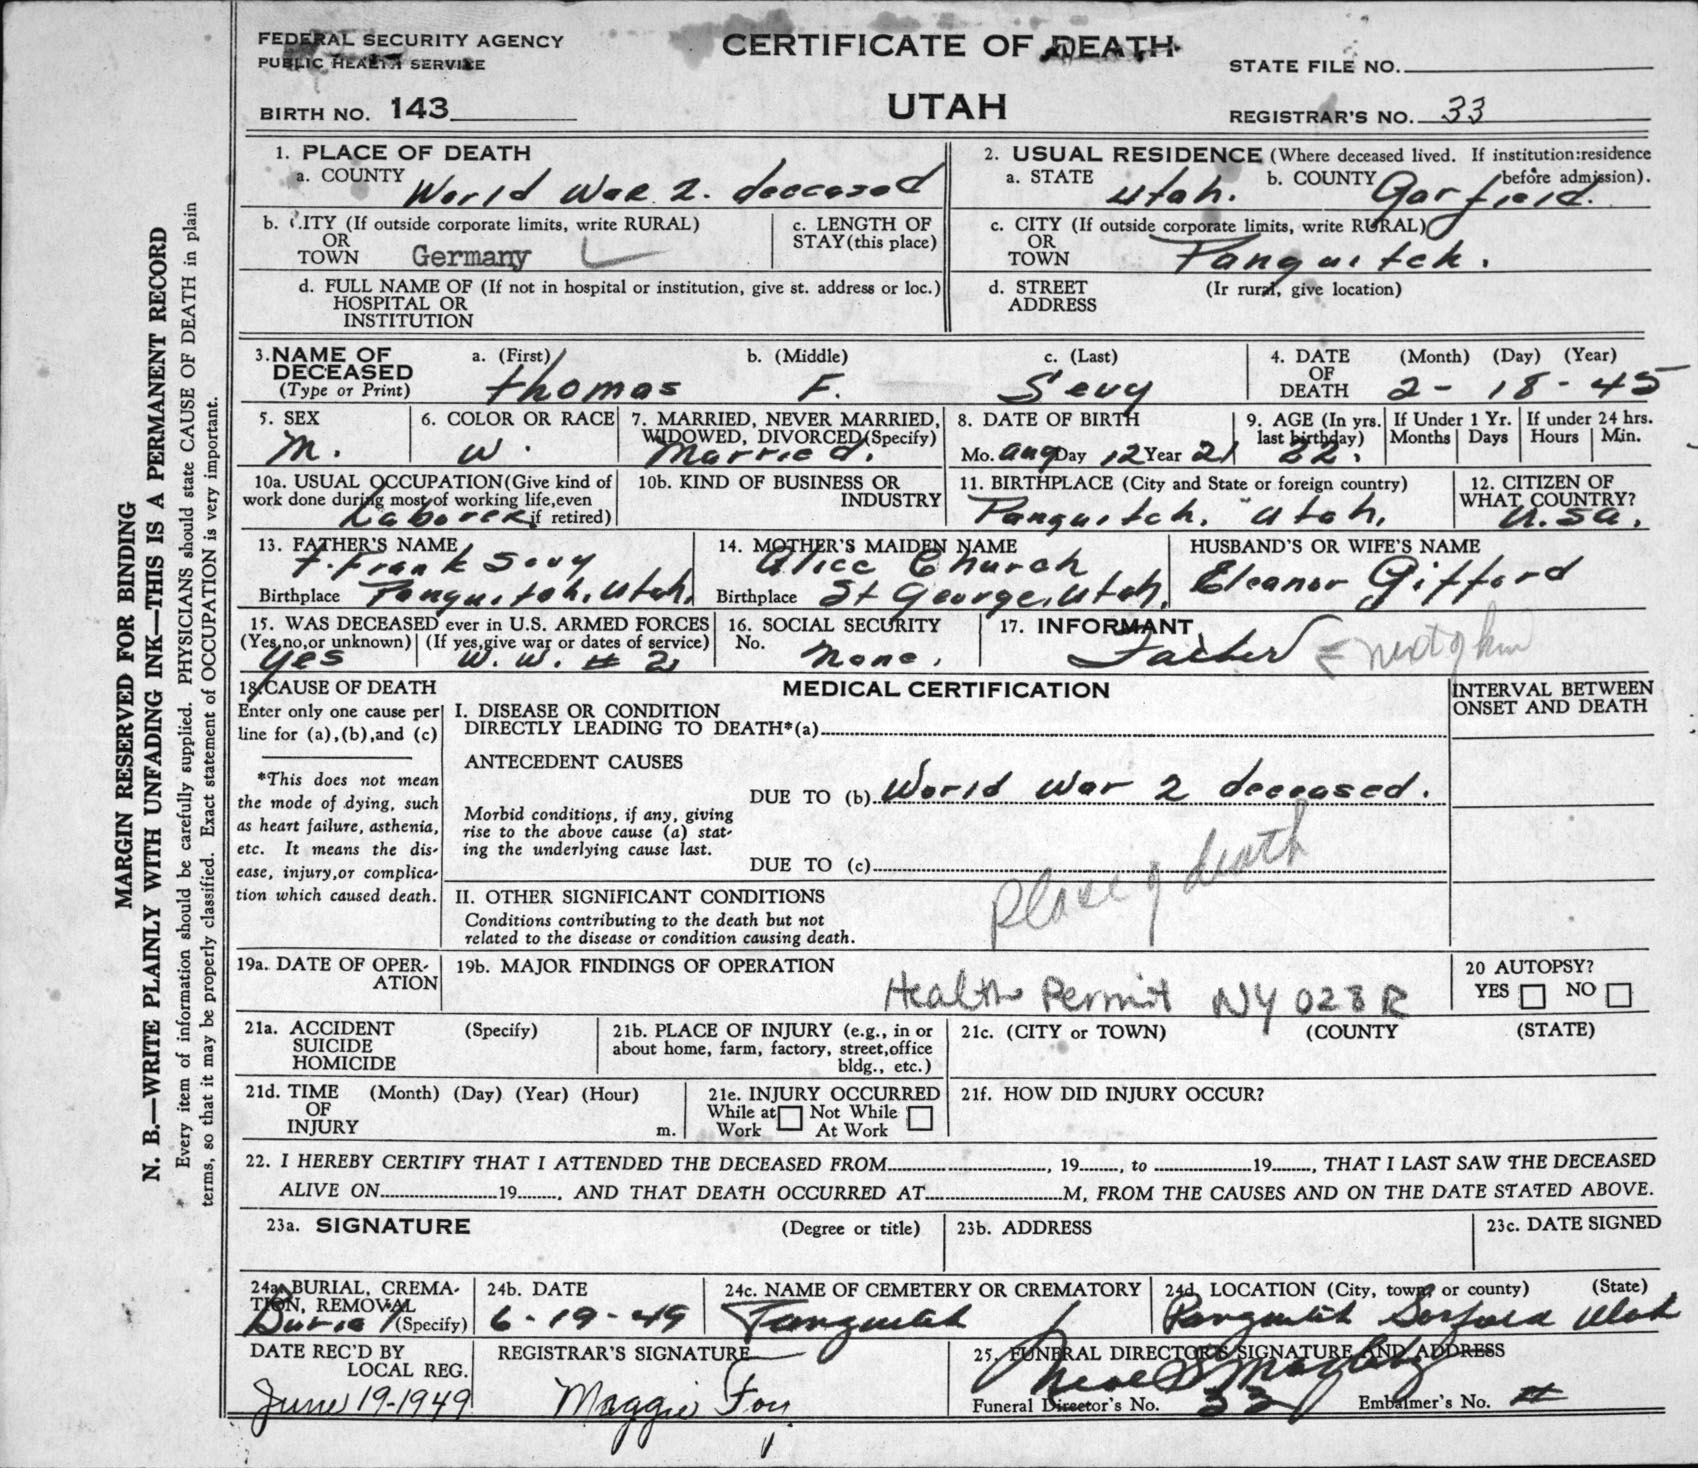 FEDERAL SECURITY AGENCY
PUBLIC HEALTH SERVICE
CERTIFICATE OF DEATH
STATE FILE NO.
BIRTH NO. 143
UTAH
REGISTRAR'S NO. 33
1. PLACE OF DEATH
a. COUNTY World War 2. deceased
b. CITY (If outside corporate limits, write RURAL)
OR
TOWN Germany
c. LENGTH OF
STAY (this place)
d. FULL NAME OF (If not in hospital or institution, give st. address or loc.)
HOSPITAL OR
INSTITUTION
2. USUAL RESIDENCE (Where deceased lived. If institution:residence
before admission).
a. STATE Utah. b. COUNTY Garfield.
c. CITY (If outside corporate limits, write RURAL)
OR
TOWN Panguitch.
d. STREET (Ir rural, give location)
ADDRESS
3. NAME OF
DECEASED
(Type or Print)
a. (First) b. (Middle) c. (Last)
Thomas F. Sevy
4. DATE (Month) (Day) (Year)
OF
DEATH 2 - 18 - 45
5. SEX
M.
6. COLOR OR RACE
W.
7. MARRIED, NEVER MARRIED,
WIDOWED, DIVORCED (Specify)
Married.
8. DATE OF BIRTH
Mo. Aug Day 12 Year 21
9. AGE (In yrs.
last birthday)
22.
If Under 1 Yr.
Months | Days
If under 24 hrs.
Hours | Min.
10a. USUAL OCCUPATION (Give kind of
work done during most of working life, even
if retired)
Laborer
10b. KIND OF BUSINESS OR
INDUSTRY
11. BIRTHPLACE (City and State or foreign country)
Panguitch. Utah.
12. CITIZEN OF
WHAT COUNTRY?
U.SA.
13. FATHER'S NAME
F. Frank Sevy
Birthplace Panguitch, Utah.
14. MOTHER'S MAIDEN NAME
Alice Church
Birthplace St George, Utah.
HUSBAND'S OR WIFE'S NAME
Eleanor Gifford
15. WAS DECEASED ever in U.S. ARMED FORCES
(Yes,no,or unknown) (If yes,give war or dates of service)
Yes W. W. # 2
16. SOCIAL SECURITY
No.
None.
17. INFORMANT
Father = next of kin
18. CAUSE OF DEATH
Enter only one cause per
line for (a),(b),and (c)
*This does not mean
the mode of dying, such
as heart failure, asthenia,
etc. It means the dis-
ease, injury,or complica-
tion which caused death.
MEDICAL CERTIFICATION
I. DISEASE OR CONDITION
DIRECTLY LEADING TO DEATH*(a)
ANTECEDENT CAUSES
DUE TO (b) World War 2 deceased.
Morbid conditions, if any, giving
rise to the above cause (a) stat-
ing the underlying cause last.
DUE TO (c)
Place of death
II. OTHER SIGNIFICANT CONDITIONS
Conditions contributing to the death but not
related to the disease or condition causing death.
INTERVAL BETWEEN
ONSET AND DEATH
19a. DATE OF OPER-
ATION
19b. MAJOR FINDINGS OF OPERATION
Health Permit NY 028 R
20 AUTOPSY?
YES NO
21a. ACCIDENT (Specify)
SUICIDE
HOMICIDE
21b. PLACE OF INJURY (e.g., in or
about home, farm, factory, street,office
bldg., etc.)
21c. (CITY or TOWN) (COUNTY) (STATE)
21d. TIME (Month) (Day) (Year) (Hour)
OF
INJURY m.
21e. INJURY OCCURRED
While at Not While
Work At Work
21f. HOW DID INJURY OCCUR?
22. I HEREBY CERTIFY THAT I ATTENDED THE DECEASED FROM , 19 , to 19 , THAT I LAST SAW THE DECEASED
ALIVE ON 19 , AND THAT DEATH OCCURRED AT M, FROM THE CAUSES AND ON THE DATE STATED ABOVE.
23a. SIGNATURE (Degree or title)
23b. ADDRESS
23c. DATE SIGNED
24a. BURIAL, CREMA-
TION, REMOVAL
(Specify)
Burial
24b. DATE
6 - 19 - 49
24c. NAME OF CEMETERY OR CREMATORY
Panguitch
24d. LOCATION (City, town, or county) (State)
Panguitch Garfield Utah
DATE REC'D BY
LOCAL REG.
June 19-1949
REGISTRAR'S SIGNATURE
Maggie Foy
25. FUNERAL DIRECTOR'S SIGNATURE AND ADDRESS
Funeral Director's No. 33 Embalmer's No. #
MARGIN RESERVED FOR BINDING
N. B.—WRITE PLAINLY WITH UNFADING INK—THIS IS A PERMANENT RECORD
Every item of information should be carefully supplied. PHYSICIANS should state CAUSE OF DEATH in plain
terms, so that it may be properly classified. Exact statement of OCCUPATION is very important.